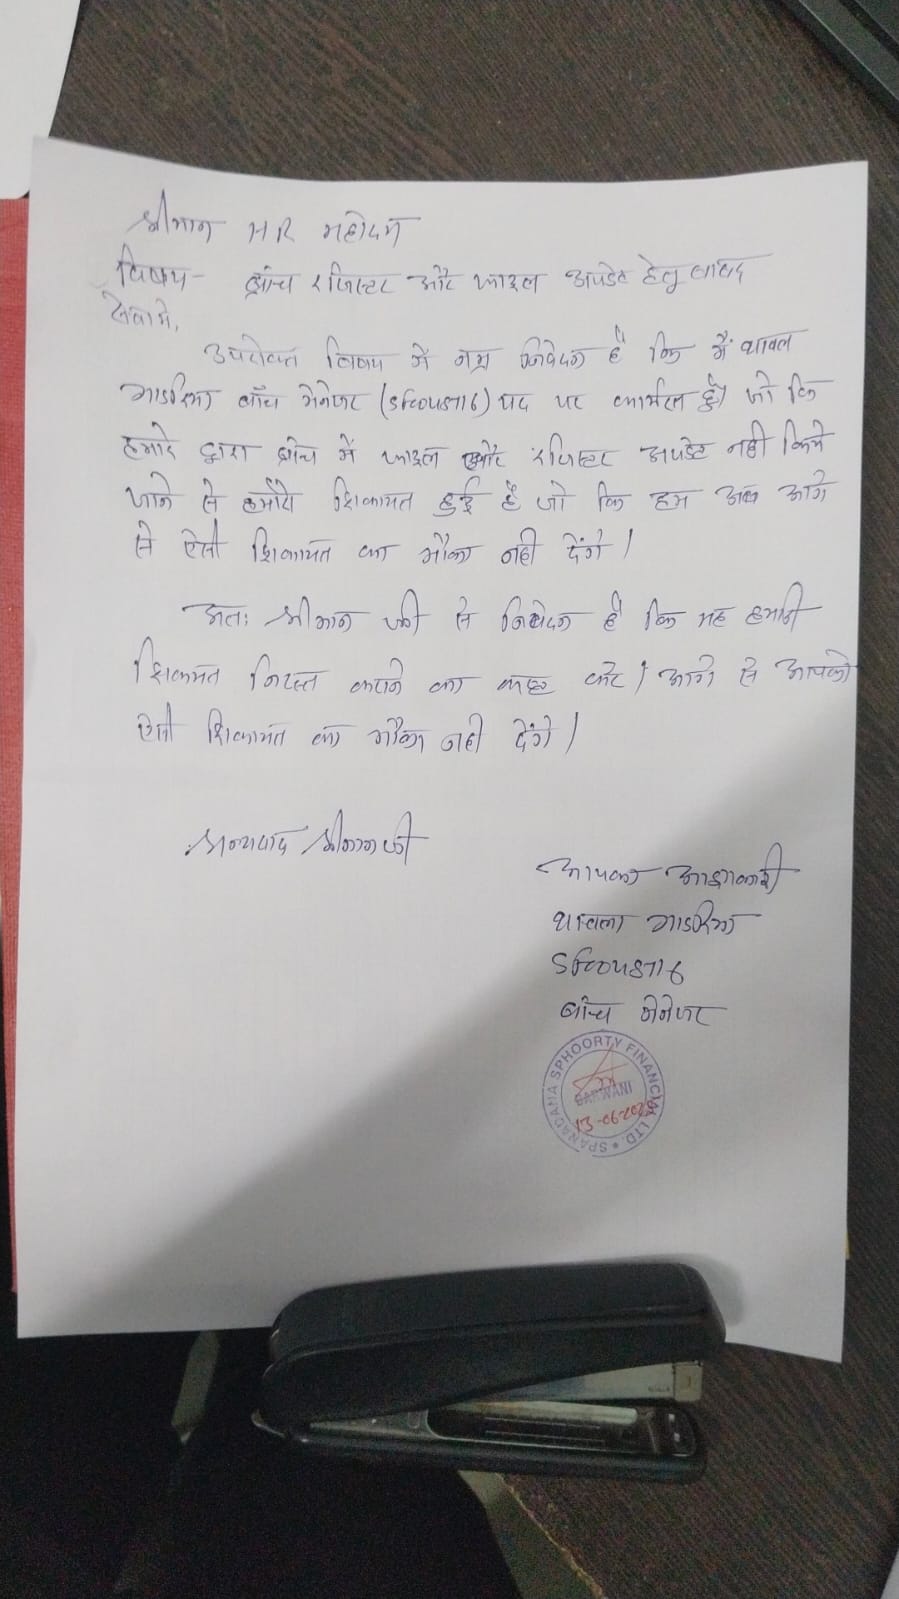 श्रीमान HR महोदय
विषय- ब्रांच रजिस्टर और फाइल अपडेट हेतु बाबद
सेवामे,
उपरोक्त विषय में नम्र निवेदन है कि मैं थावला
गाडरिया ब्रॉच मेनेजर पद पर कार्यरत हूँ। जो कि
हमारे द्वारा ब्रांच में फाइल और रजिस्टर अपडेट नही किये
जाने से हमारी शिकायत हुई है जो कि हम अब आगे
से ऐसी शिकायत का मौका नही देंगे।
अतः श्रीमान जी से निवेदन है कि यह हमारी
शिकायत निरस्त करने का कष्ट करे। आगे से आपको
ऐसी शिकायत का मौका नही देंगे।
धन्यवाद श्रीमान जी
आपका आज्ञाकारी
थावला गाडरिया
ब्रॉच मेनेजर
SPANADANA SPHOORTY FINANCIAL LTD.
BARWANI
13-06-202